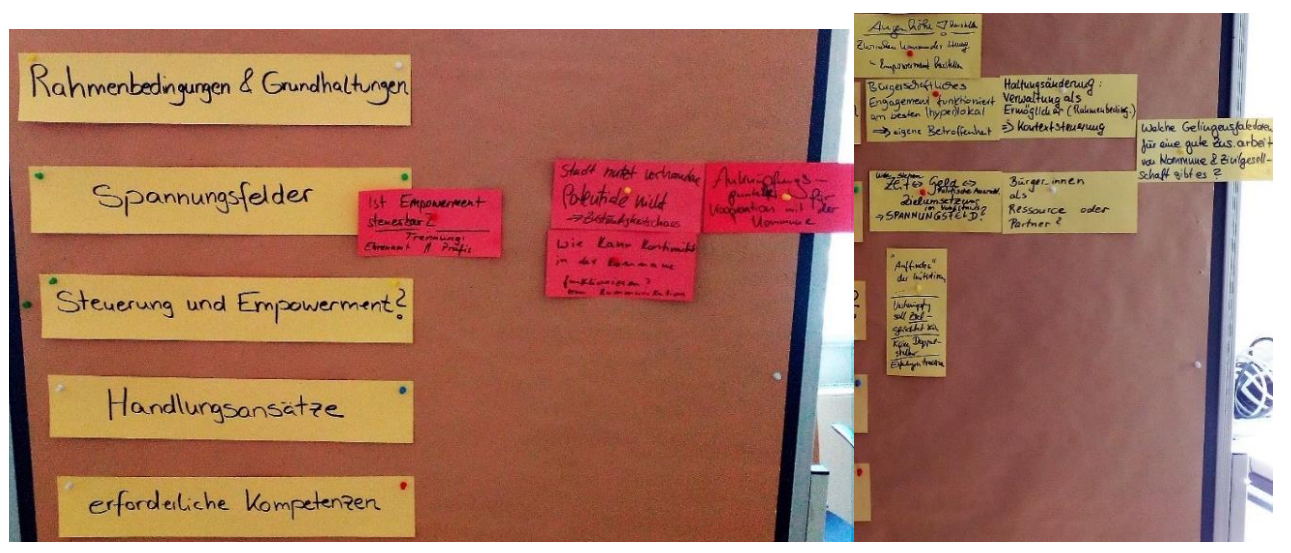 Rahmenbedingungen & Grundhaltungen
Spannungsfelder
Steuerung und Empowerment?
Handlungsansätze
erforderliche Kompetenzen
Ist Empowerment
steuerbar?
Trennung:
Ehrenamt // Profis
Stadt nutzt vorhandene
Potentiale nicht
Anknüpfungs-
punkte für
Kooperation mit der
Kommune
Wie kann Kontinuität
in der Kommune
funktionieren?
Kommunikation
Augenhöhe
Empowerment
Bürgerschaftliches
Engagement funktioniert
am besten (hyper)lokal
⇒ eigene Betroffenheit
Haltungsänderung:
Verwaltung als
Ermöglicher (Rahmenbeding.)
⇒ Kontextsteuerung
Welche Gelingensfaktoren
für eine gute Zus.arbeit
von Kommune & Zivilgesell-
schaft gibt es?
Zeit ⇔ Geld ⇔
Zielumsetzung
→ SPANNUNGSFELD?
Bürger_innen
als
Ressource oder
Partner?
"Auffinden"
der Initiativen
soll Ziel-
gerichtet sein
Keine Doppel-